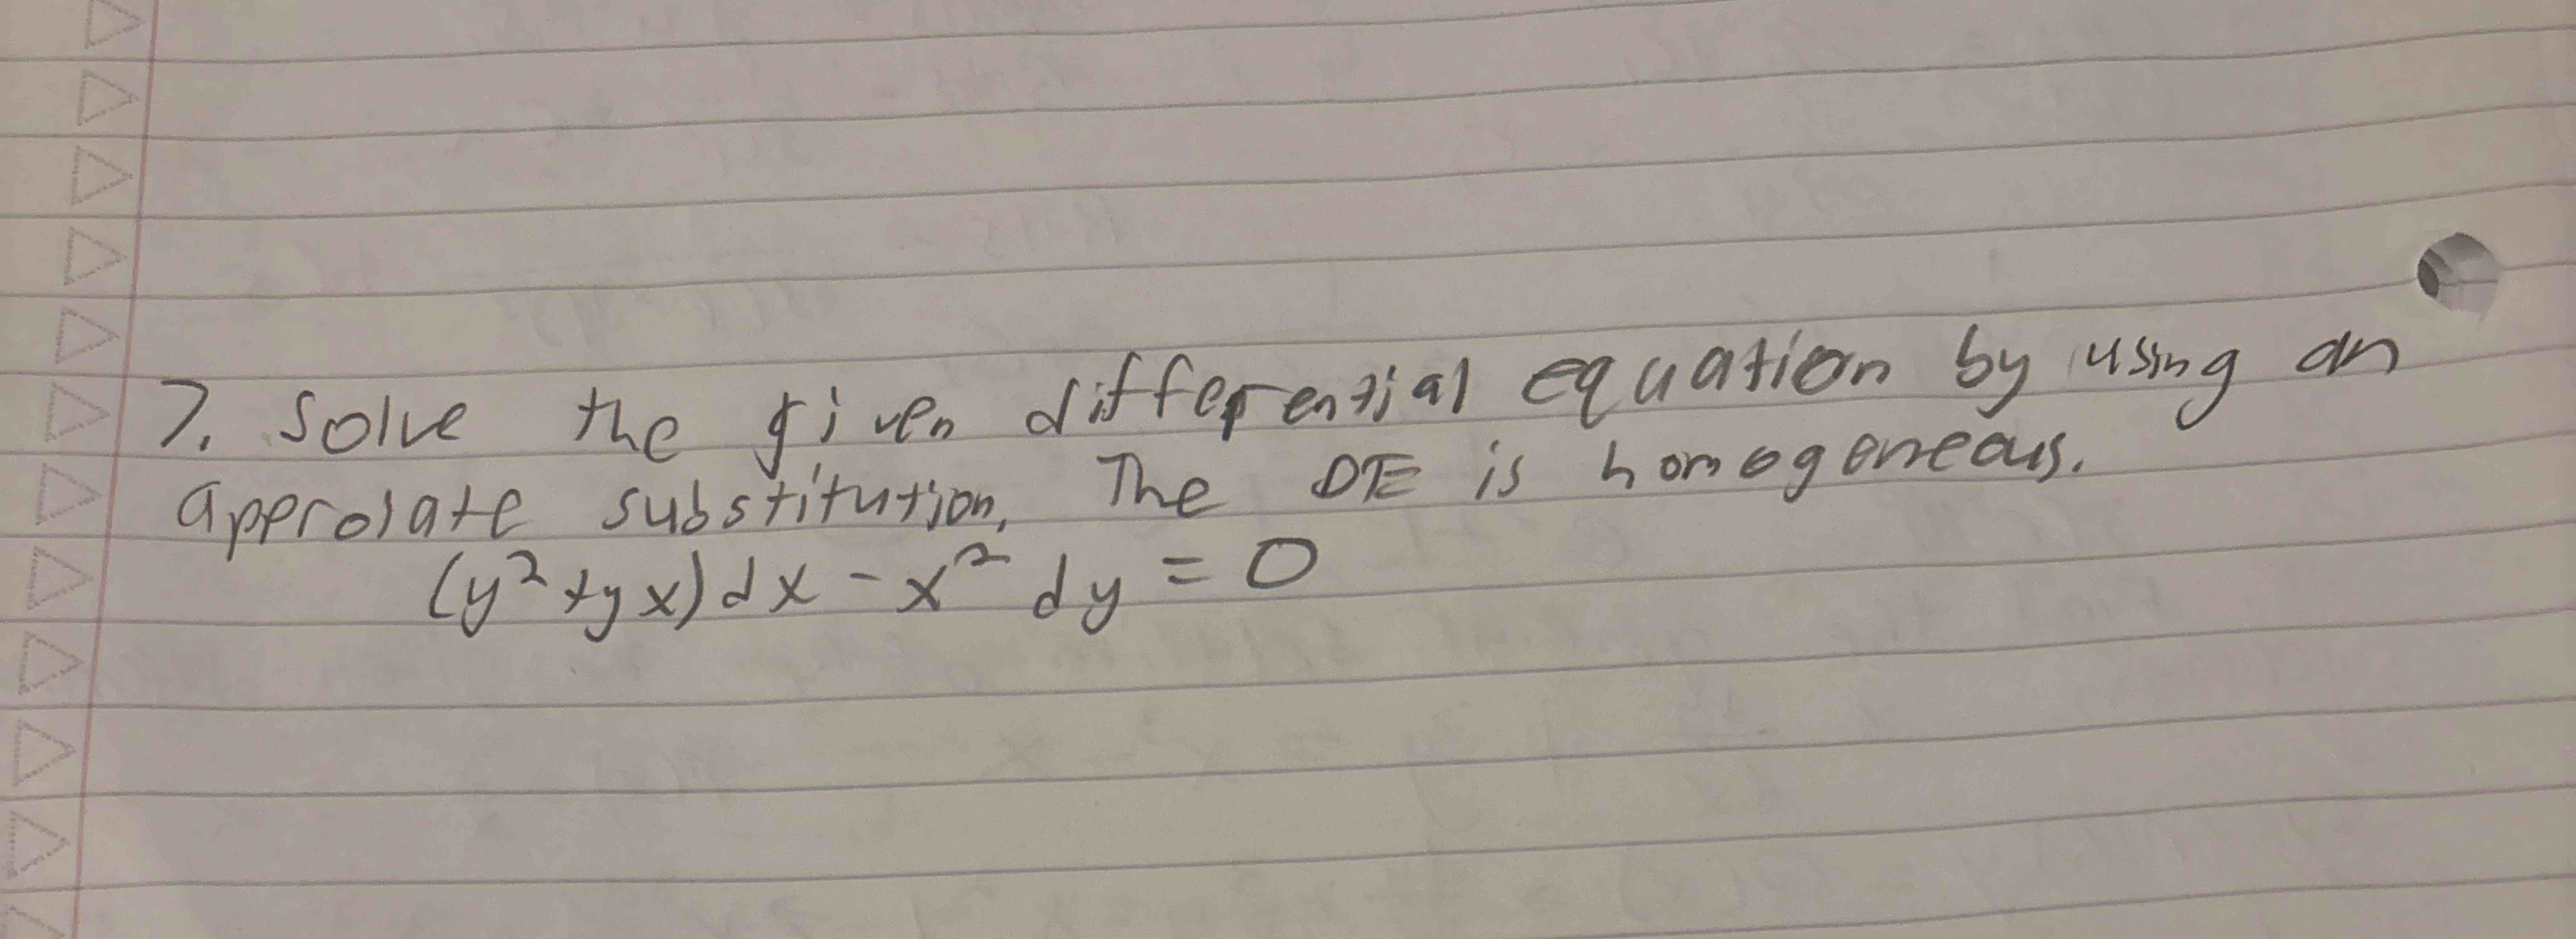 7. Solve the given differential equation by using an
approiate substitution. The DE is homogeneous.
(y² + yx)dx - x² dy = 0